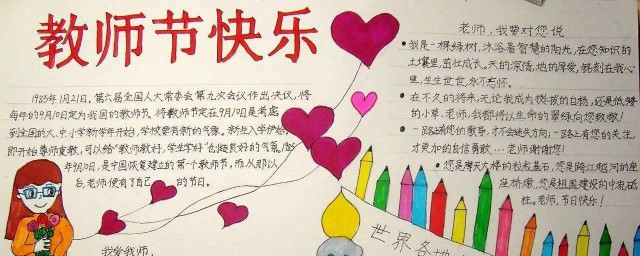 教师节快乐
1985年1月21日，第六届全国人大常委会第九次会议作出决议，将
每年的9月10日定为我国的教师节。将教师节定在9月10日是考虑
到全国的大、中小学新学年开始，学校要有新的气象。新生入学伊始，
即开始尊师重教，可以给"教师教好，学生学好"创造良好的气氛。1985
年9月10日，是中国恢复建立的第一个教师节，而从那以
后，老师便有了自己的节日。
我爱我师，
老师，我要对您说
我是一棵绿树，沐浴着智慧的阳光，在您知识的
土壤里，茁壮成长。天的深情，地的厚爱，铭刻在我心
里，生生世世，永不忘怀。
在不久的将来，无论我成为挺拔的白杨，还是低矮
的小草，老师，我都将以生命的翠绿向您致敬！
一路上有您的教导，才不会迷失方向；一路上有您的关注，
才更加的自信勇敢……老师谢谢您！
您是摩天大楼的粒粒基石，您是跨江越河的座
座桥墩，您是祖国建设的中流砥
柱。老师，节日快乐！
世界各地